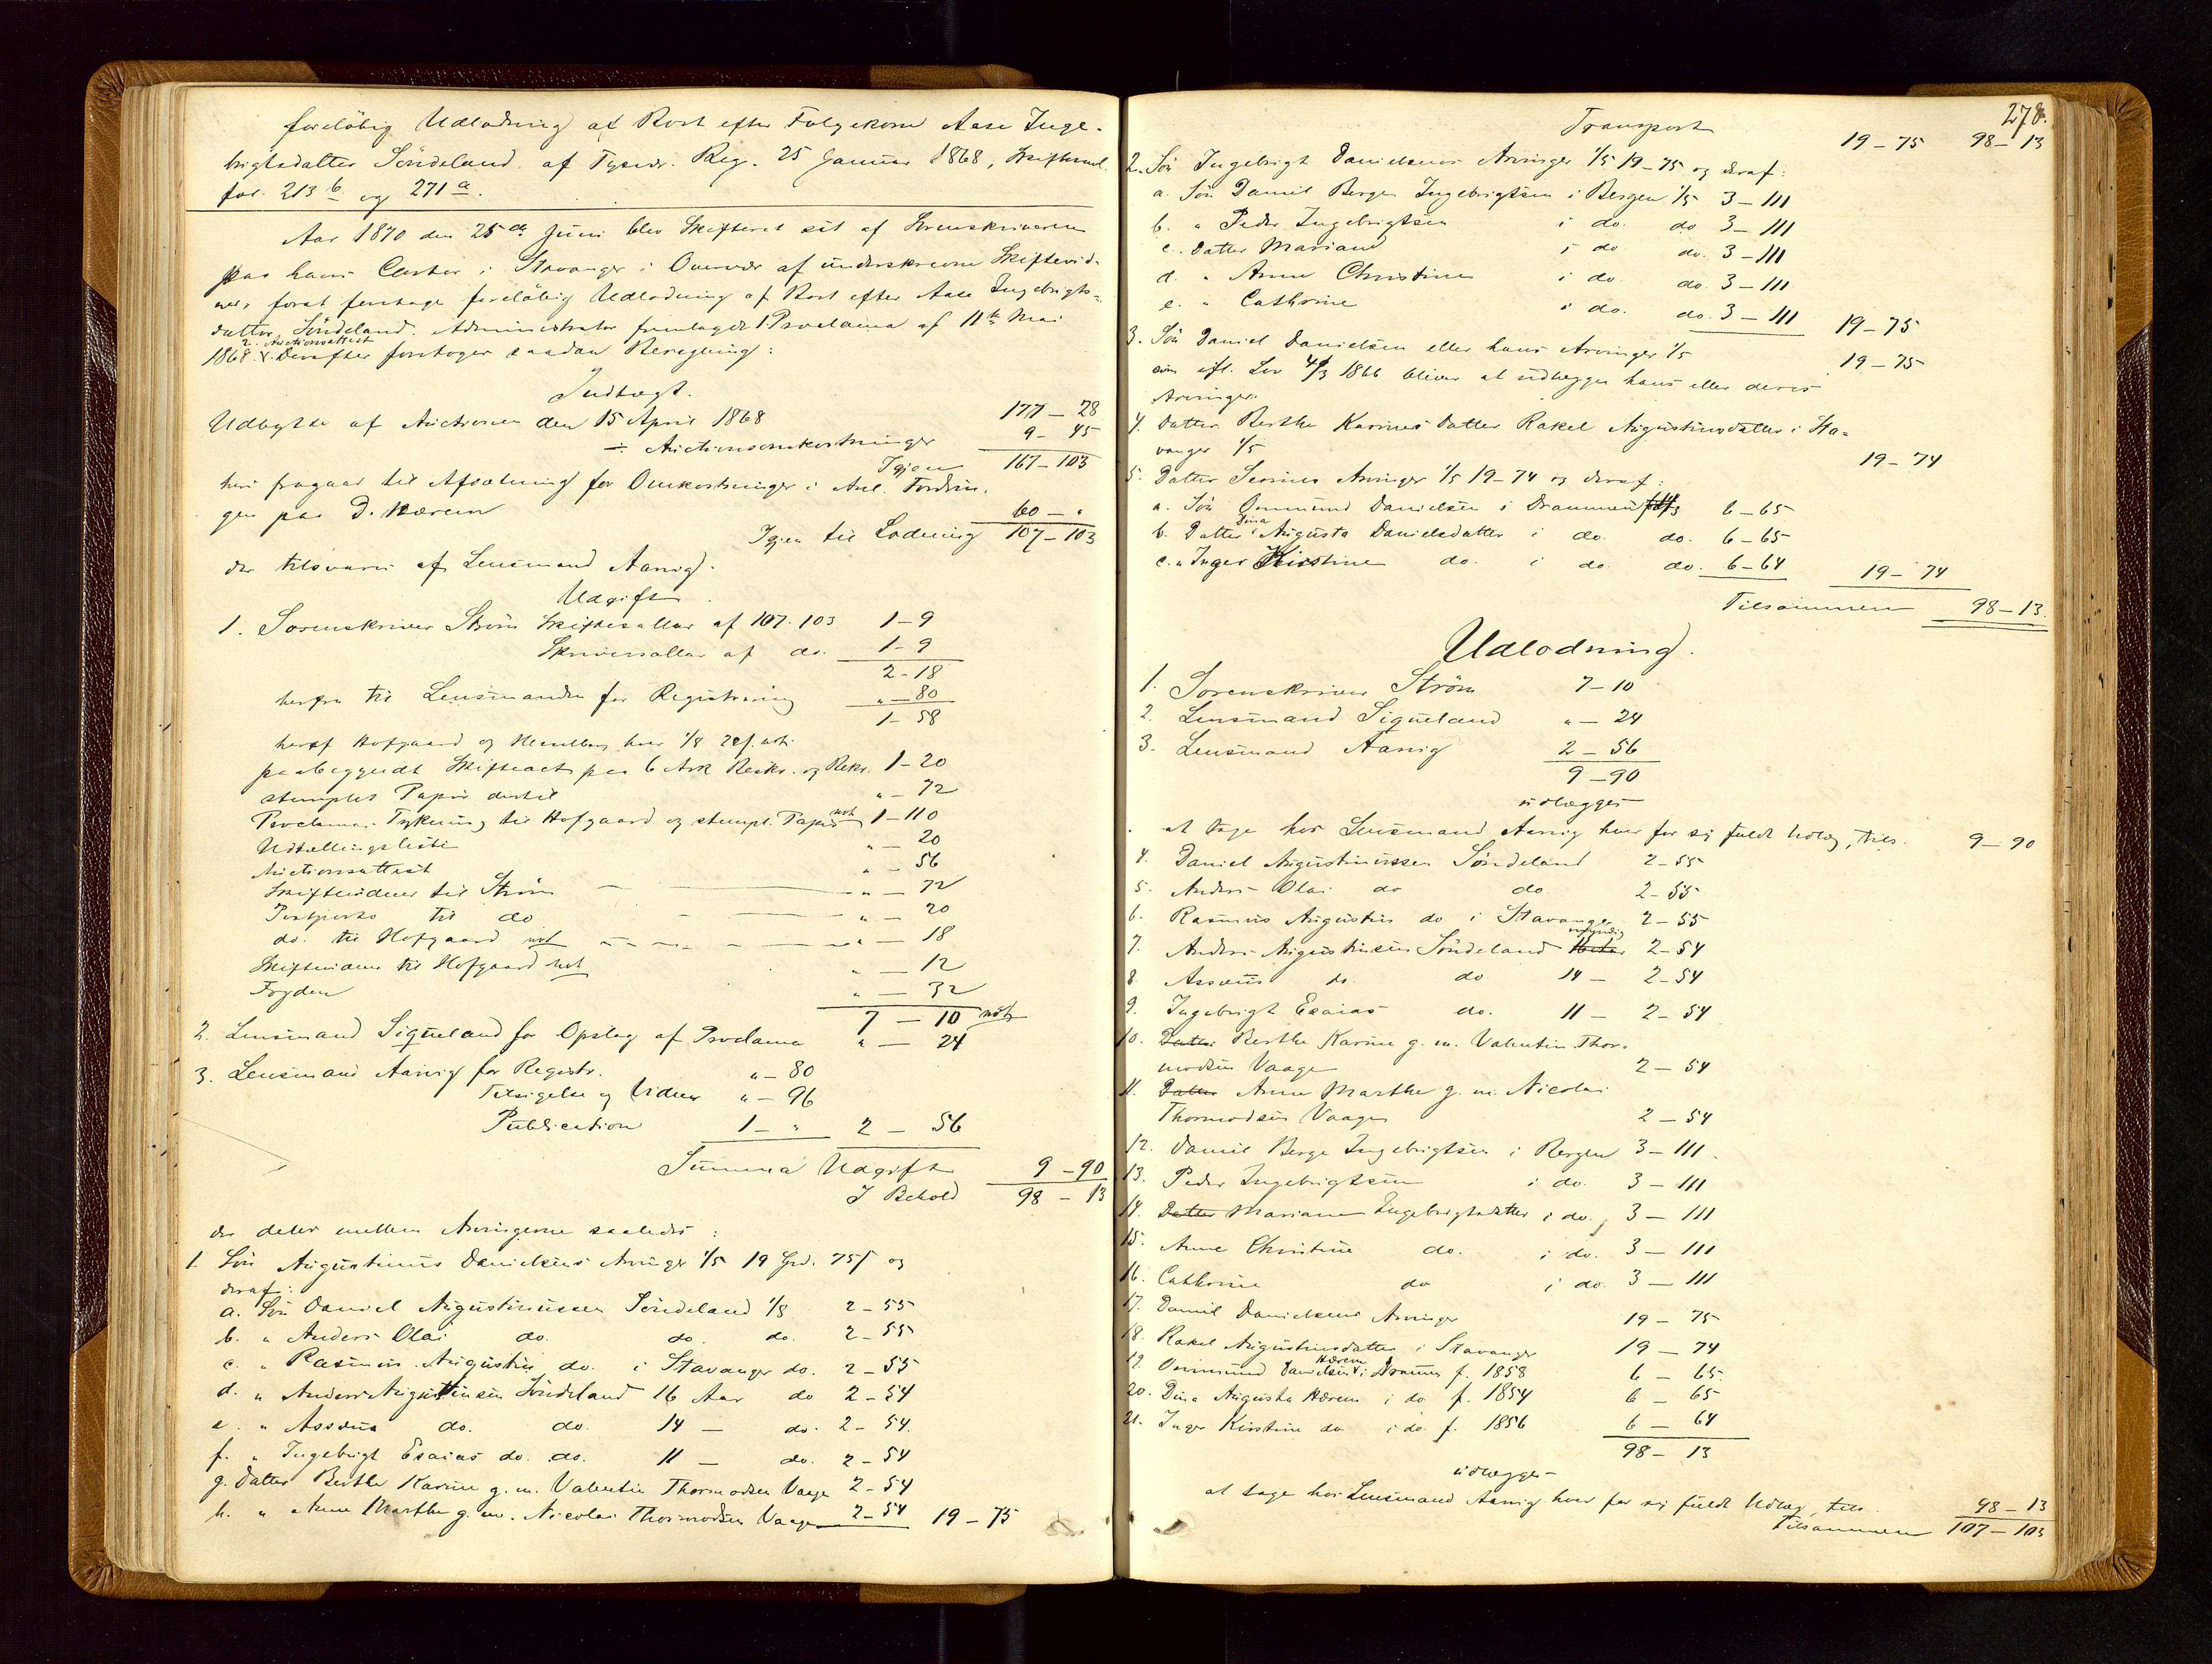 foreløbig Udlodning af Boet efter Følgekone Aase Inge-
brigtsdatter Söndeland af Tysvær. Reg. 25 Januar 1868, 
fol. 213 b og 271 a.
Aar 1870 den 25de Juni blev Skifteret sat af Sorenskriveren
paa hans Contor i Stavanger i Overvær af underskrevne Skiftevid-
ner, forat foretage foreløbig Udlodning af Boet efter Aase Ingebrigts-
datter Söndeland. Administrator fremlagde 1. Proclama af 11te Mai
2. Auctionsattest
1868. Derefter foretoges saadan Beregning:
Indtægt.
Udbytte af Auctionen den 15 April 1868 177 – 28
÷ Auctionsomkostninger 9 – 45
Igjen 167 – 103
heri fragaar til Afsætning for Omkostninger i Anl. Fordrin-
gen paa D. Hærem 60 – "
Igjen til Lodning 107 – 103
der tilsvares af Lensmand Aarvig.
Udgift.
1. Sorenskriver Ström Skiftesallar af 107. 103 1 – 9
Skriversallar af do. 1 – 9
2 – 18
herfra til Lensmanden for Registrering " – 80
1 – 58
heraf Hofgaard og
paabegyndt Skifteact paa 6 Ark Beskr. og Rekv. 1 – 20
stemplet Papir dertil " – 72
Proclama. Trykning til Hofgaard og stempl. Papir not 1 – 110
Udtællingsliste " – 20
Auctionsattest " – 56
Skiftevidner til Ström " – 72
Postporto til do " – 20
do. til Hofgaard not " – 18
Skiftevidner til Hofgaard not " – 12
Fogden " – 32
7 – 10 not
2. Lensmand Siqveland for Opslag af Proclama " – 24
3. Lensmand Aarvig for Registr. " – 80
Tilsigelse og Vidner " – 96
Publication 1 – " 2 – 56
Summa Udgift 9 – 90
I Behold 98 – 13
der deles mellem Arvingerne saaledes:
1. Sön Augustinus Danielsens Arvinger 1/5 19 Spd. 75 f og
deraf:
a. Sön Daniel Augustinussen Söndeland 1/8 2 – 55
b. " Anders Olai do. do. do. 2 – 55
c. " Rasmus Augustin do. i Stavanger do. 2 – 55
d. " Anders Augustinsen Söndeland 16 Aar do 2 – 54
e. " Assæus do. do. 14 – do. 2 – 54.
f. " Ingebrigt Esaias do. do. 11 – do. 2 – 54
g. Datter Berthe Karine g. m. Valentin Thormodsen Vaage 2 – 54
h. " Anne Marthe g. m. Nicolai Thormodsen Vaage 2 – 54 19 – 75
278.
Transport 19 – 75 98 – 13
2. Sön Ingebrigt Danielsens Arvinger 1/5 19 – 75 og deraf:
a. Sön Daniel Berge Ingebrigtsen i Bergen 1/5 3 – 111
b. " Peder Ingebrigtsen i do. do 3 – 111
c. Datter Mariane i do do. 3 – 111
d. " Anne Christine i do do. 3 – 111
e. " Cathrine i do. do. 3 – 111 19 – 75
3. Sön Daniel Danielsen eller hans Arvinger 1/5 19 – 75
som ifl. Lov 1866 bliver at udlægge hans eller deres
Arvinger.
4. Datter Berthe Karines Datter Rakel Augustinusdatter i Sta-
vanger 1/5 19 – 74
5. Datter Serines Arvinger 1/5 19 – 74 og deraf:
a. Sön Ommund Danielsen i Drammen 1/3 6 – 65
b. Datter Dina Augusta Danielsdatter i do. do. 6 – 65
c. " Inger Kirstine do. i do. do. 6 – 64 19 – 74
Tilsammen 98 – 13.
Udlodning.
1. Sorenskriver Ström 7 – 10
2. Lensmand Siqveland " – 24
3. Lensmand Aarvig 2 – 56
9 – 90
udlægges
at tage hos Lensmand Aarvig hver for sig fuldt Udlæg, tils. 9 – 90
4. Daniel Augustinussen Söndeland 2 – 55
5. Anders Olai do do 2 – 55
6. Rasmus Augustin do i Stavanger 2 – 55
7. Anders Augustinsen Söndeland umyndig 2 – 54
8. Assæus do. do 14 – 2 – 54
9. Ingebrigt Esaias do. 11 – 2 – 54
10. Datter Berthe Karine g. m. Valentin Thor-
modsen Vaage 2 – 54
11. Datter Anne Marthe g. m. Nicolai
Thormodsen Vaage 2 – 54
12. Daniel Berge Ingebrigtsen i Bergen 3 – 111.
13. Peder Ingebrigtsen i do. 3 – 111
14. Datter Mariane Ingebrigtsdatter i do. 3 – 111
15. Anne Christine do. i do. 3 – 111
16. Cathrine do i do. 3 – 111
17. Daniel Danielsens Arvinger 19 – 75
18. Rakel Augustinusdatter i Stavanger 19 – 74
19. Ommund Danielsen Hærem i Drammen f. 1858 6 – 65.
20. Dina Augusta Hærem i do f. 1854 6 – 65
21. Inger Kirstine do i do. f. 1856 6 – 64
98 – 13
udlægges
at tage hos Lensmand Aarvig hver for sig fuldt Udlæg, tils. 98 – 13
Tilsammen 107 – 103